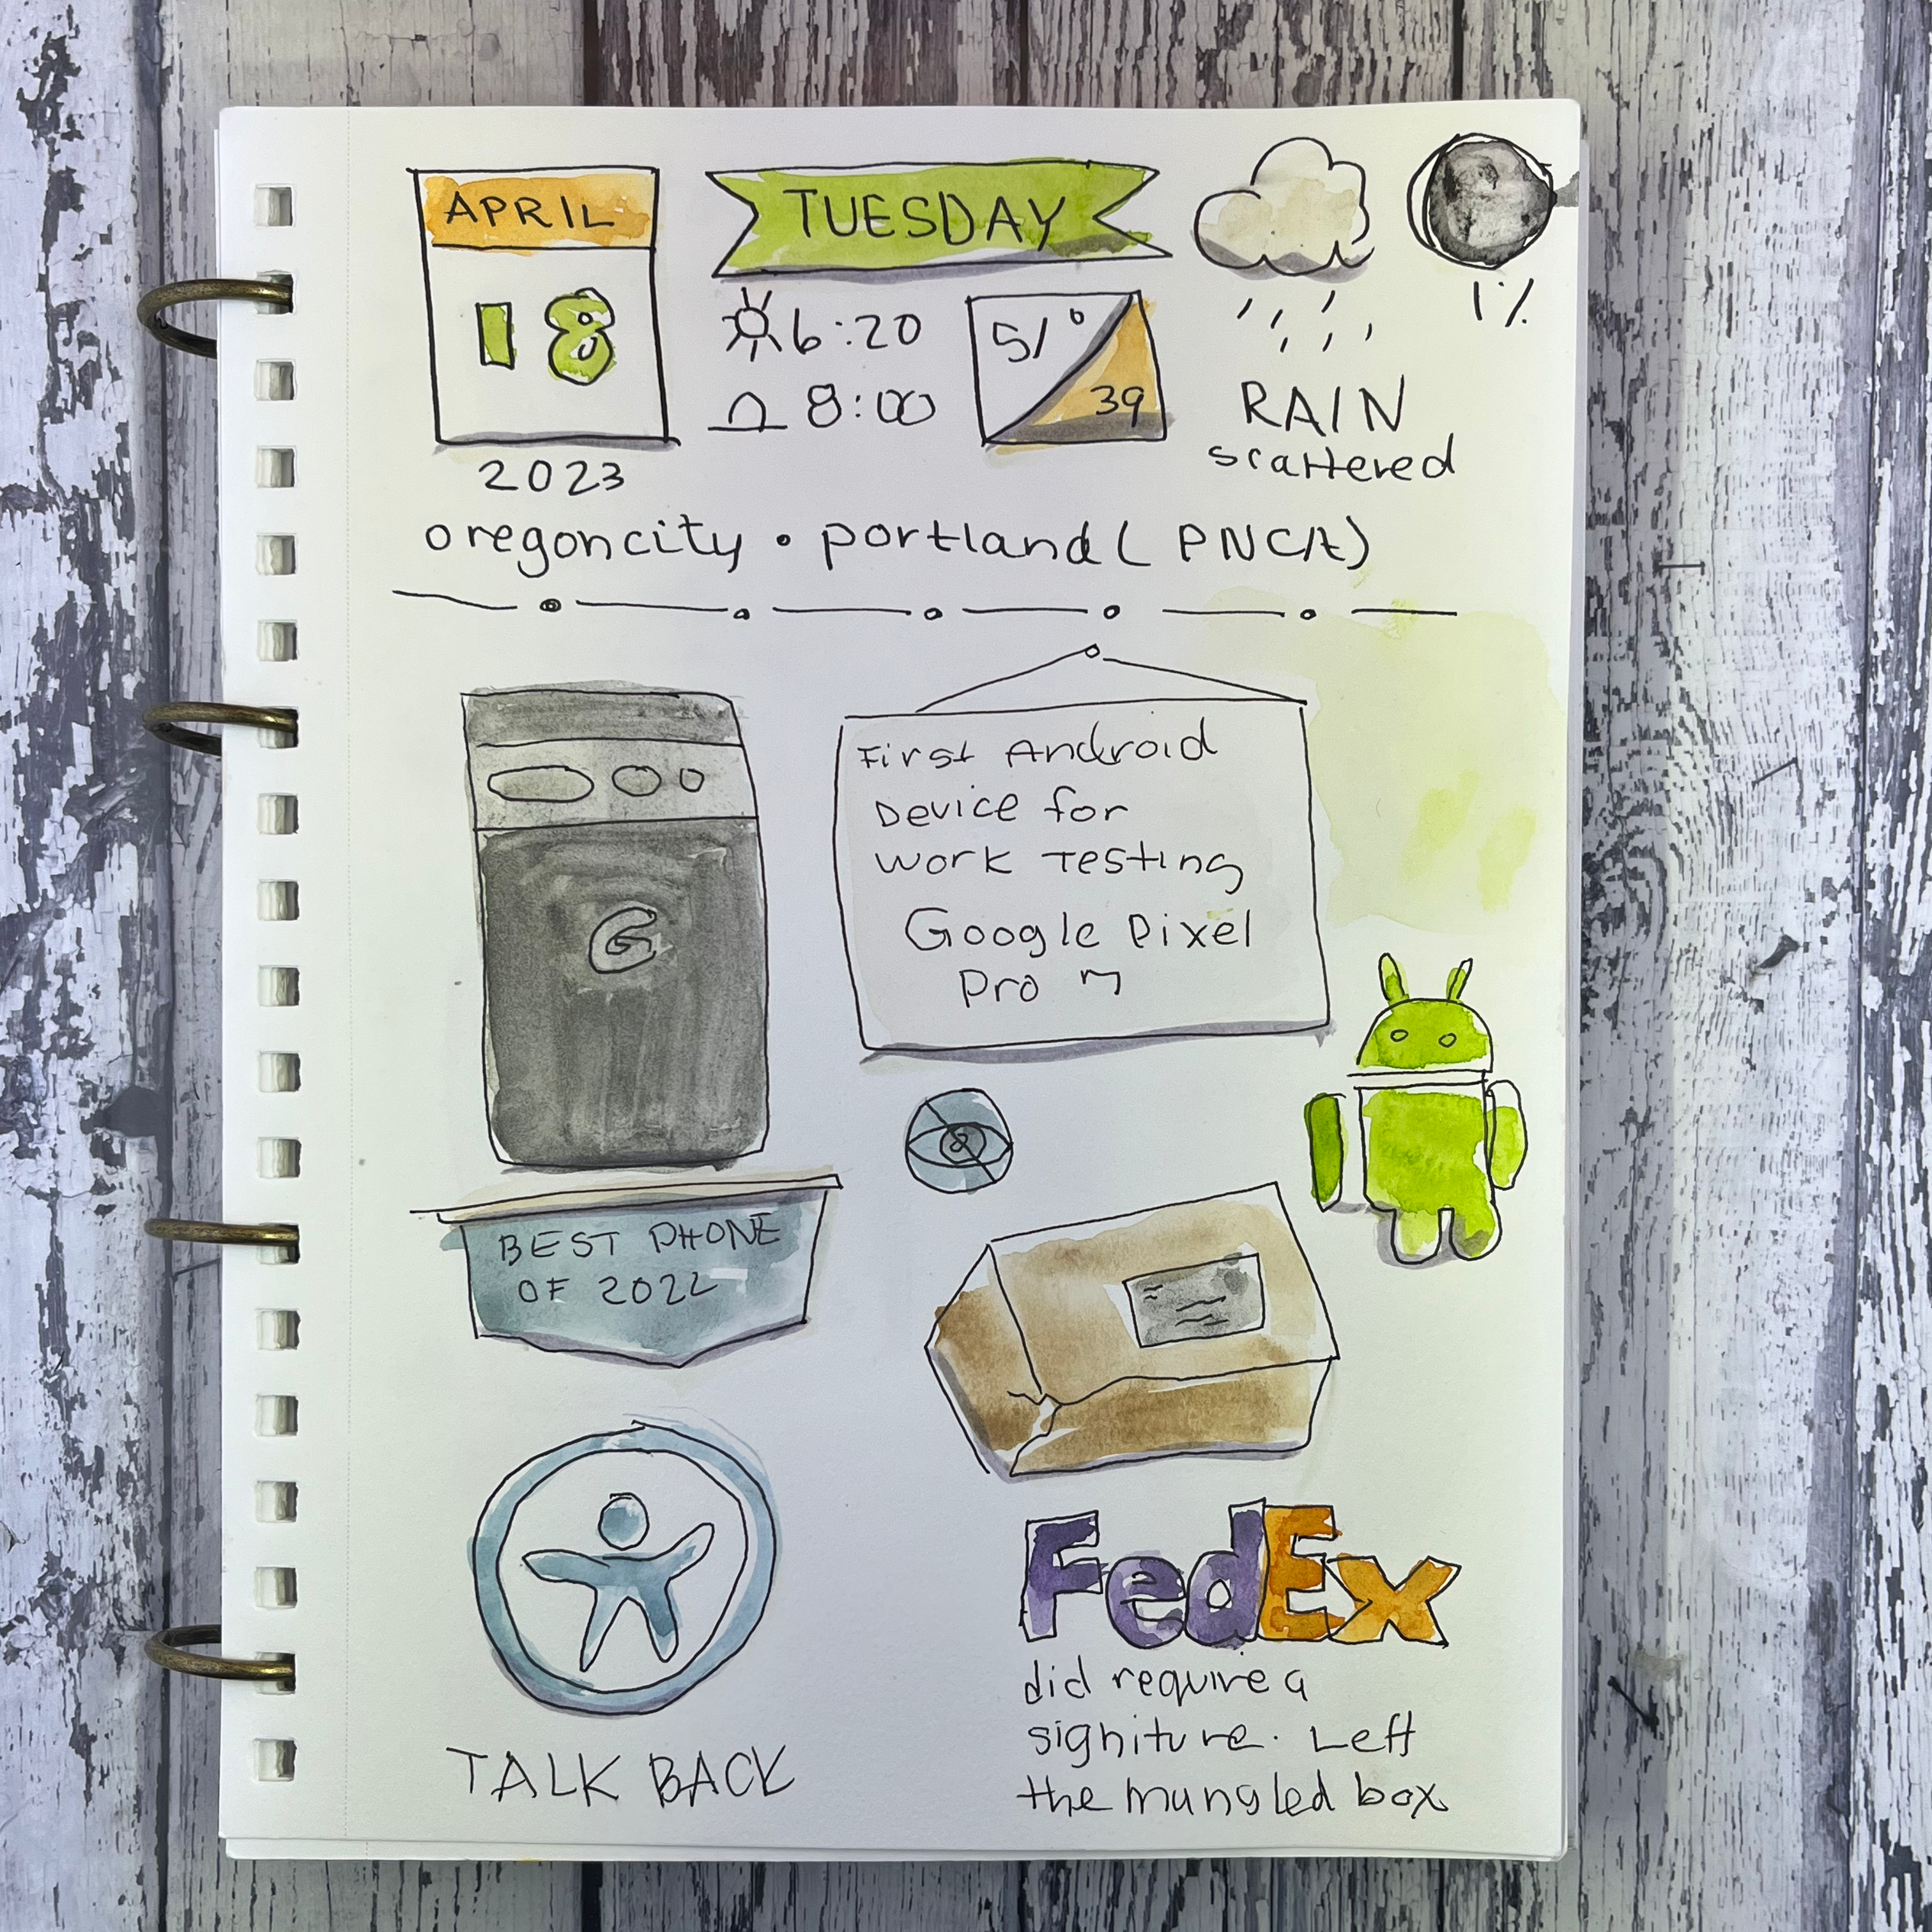 APRIL
18
2023
TUESDAY
6:20
8:00
51°
39
RAIN
scattered
1%
oregoncity • portland (PNCA)
First Android
Device for
work Testing
Google Pixel
Pro 7
G
BEST PHONE
OF 2022
TALK BACK
FedEx
did require a
signiture. Left
the mungled box